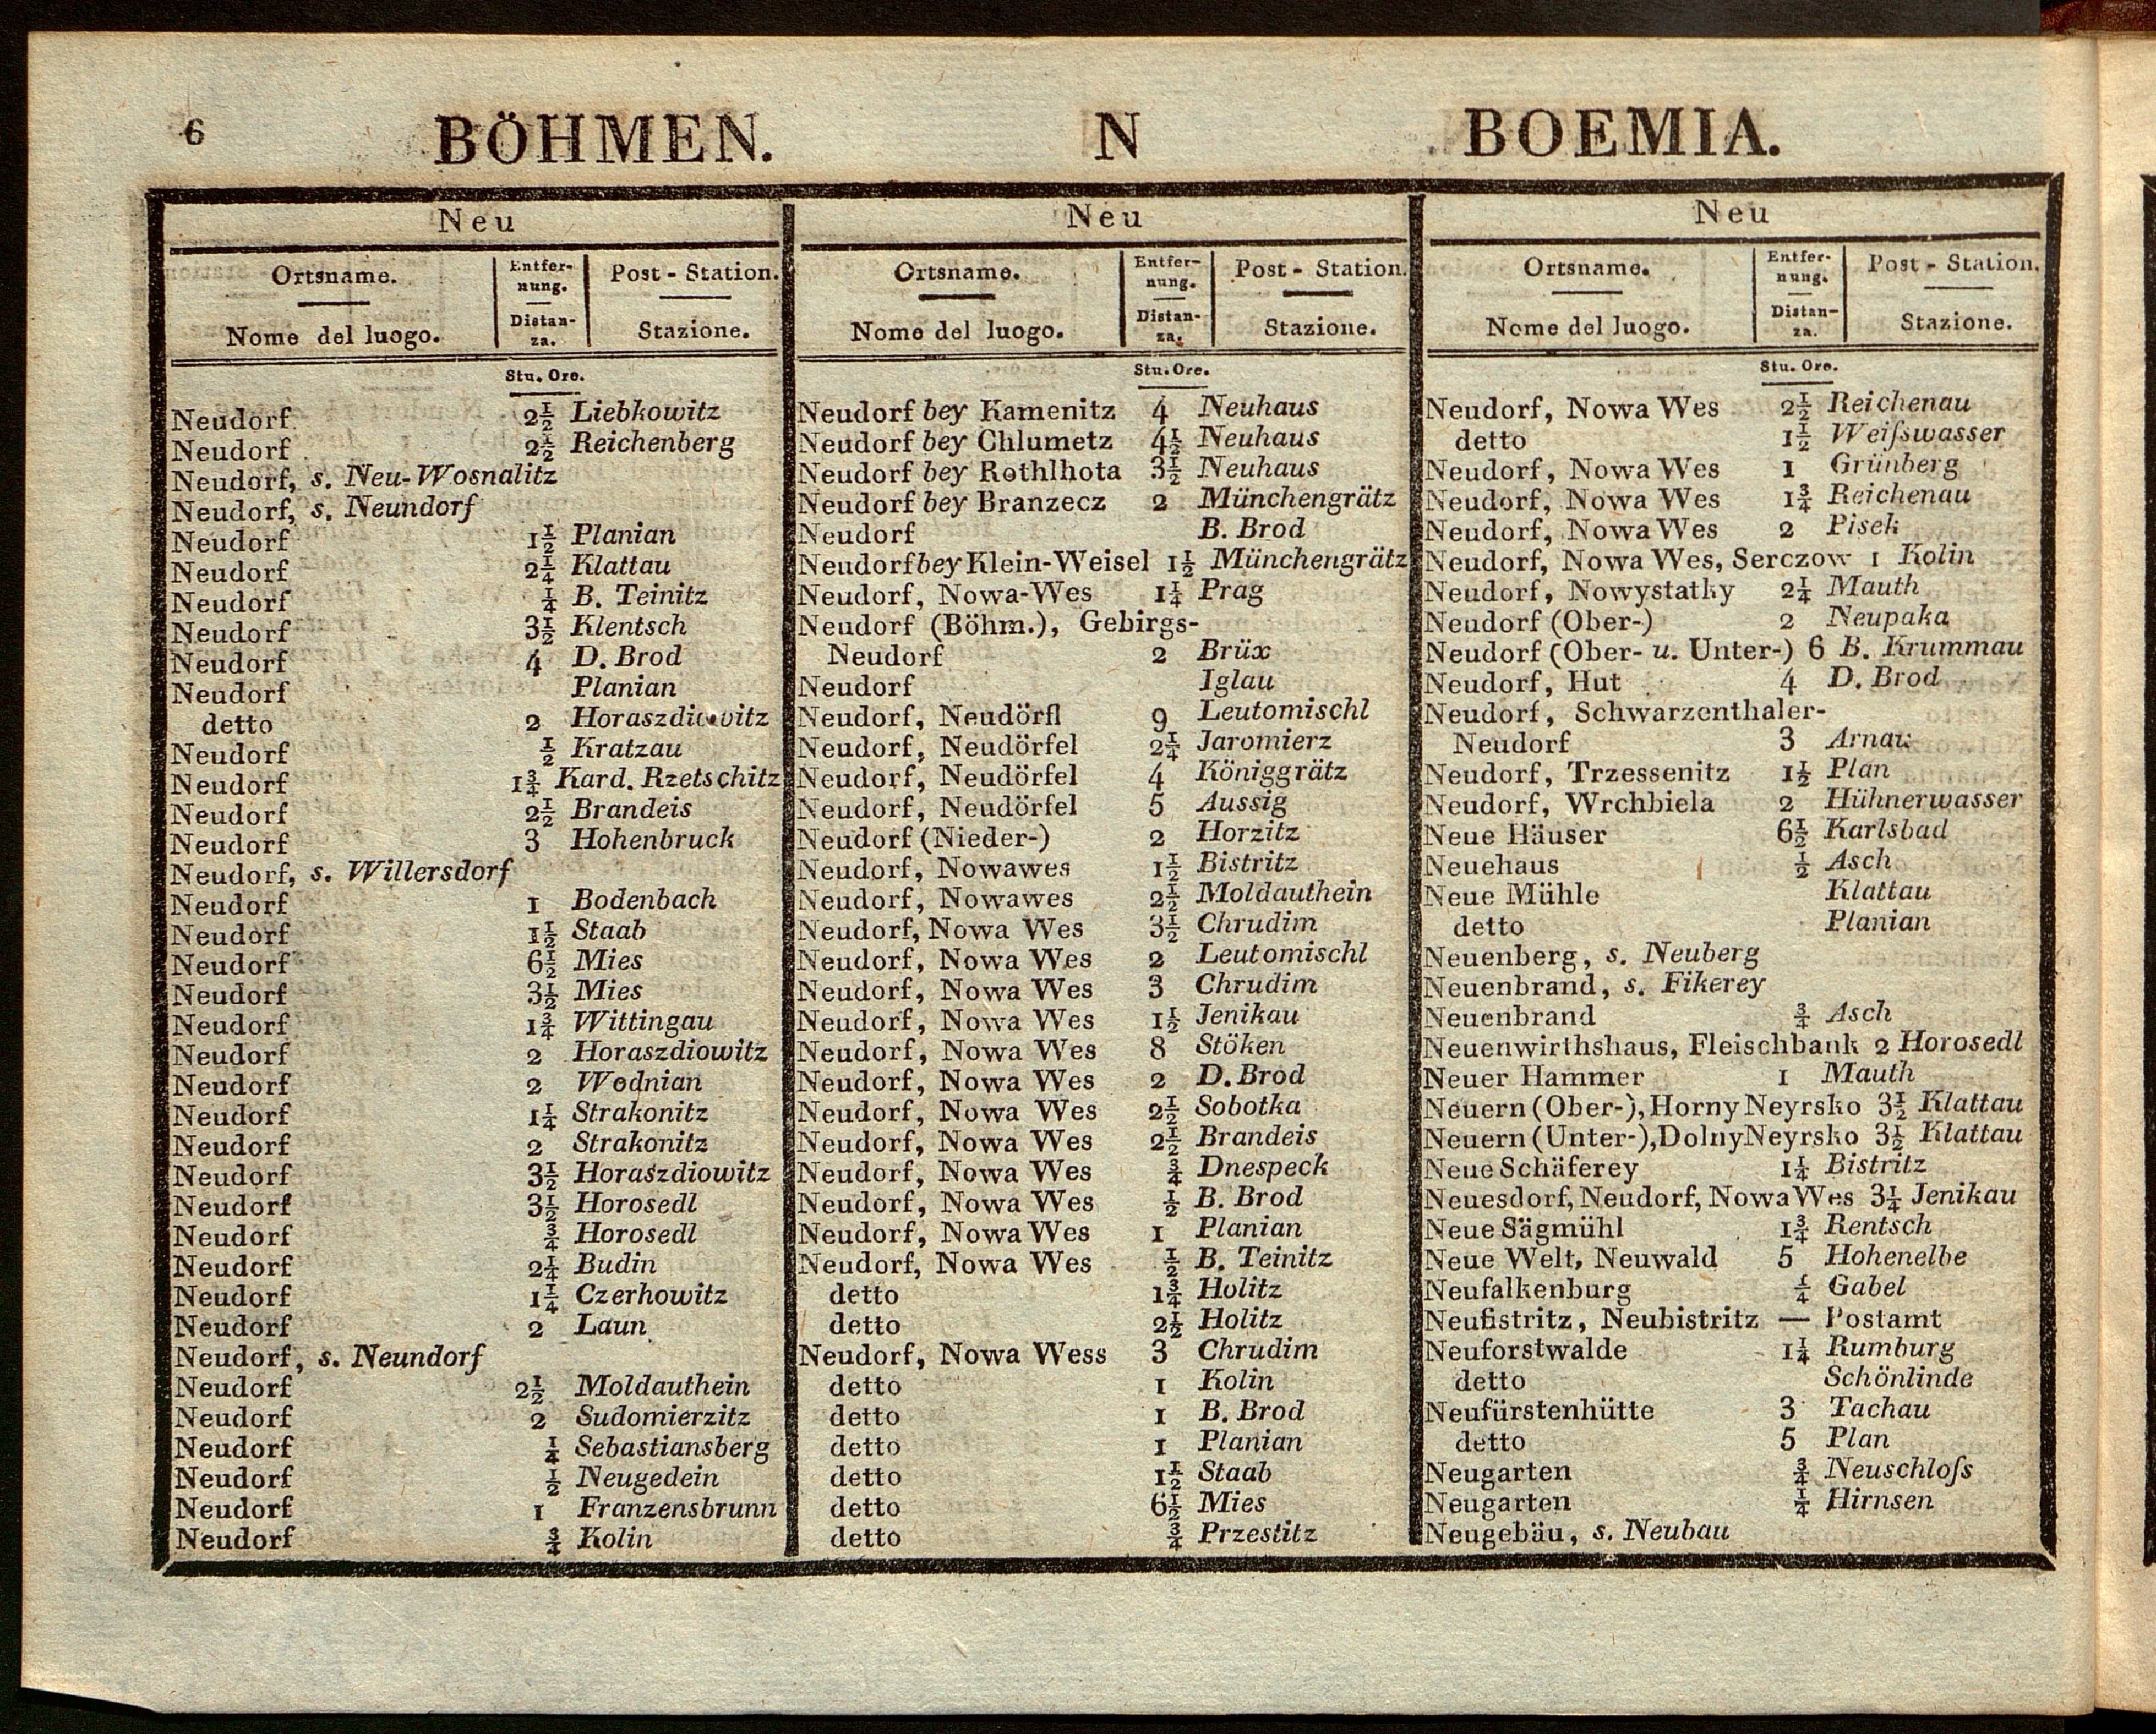 6
BÖHMEN.
N
BOEMIA.
Neu
Ortsname.
Nome del luogo.
Entfer-
nung.
Distan-
za.
Post - Station.
Stazione.
Stu. Ore.
Neudorf 2½ Liebkowitz
Neudorf 2½ Reichenberg
Neudorf, s. Neu-Wosnalitz
Neudorf, s. Neundorf
Neudorf 1½ Planian
Neudorf 2¼ Klattau
Neudorf ¼ B. Teinitz
Neudorf 3½ Klentsch
Neudorf 4 D. Brod
Neudorf Planian
detto 2 Horaszdiowitz
Neudorf ½ Kratzau
Neudorf 1¾ Kard. Rzetschitz
Neudorf 2½ Brandeis
Neudorf 3 Hohenbruck
Neudorf, s. Willersdorf
Neudorf 1 Bodenbach
Neudorf 1½ Staab
Neudorf 6½ Mies
Neudorf 3½ Mies
Neudorf 1¾ Wittingau
Neudorf 2 Horaszdiowitz
Neudorf 2 Wodnian
Neudorf 1¼ Strakonitz
Neudorf 2 Strakonitz
Neudorf 3½ Horaszdiowitz
Neudorf 3½ Horosedl
Neudorf ¾ Horosedl
Neudorf 2¼ Budin
Neudorf 1¼ Czerhowitz
Neudorf 2 Laun
Neudorf, s. Neundorf
Neudorf 2½ Moldauthein
Neudorf 2 Sudomierzitz
Neudorf ¼ Sebastiansberg
Neudorf ½ Neugedein
Neudorf 1 Franzensbrunn
Neudorf ¾ Kolin
Neu
Ortsname.
Nome del luogo.
Entfer-
nung.
Distan-
za.
Post - Station.
Stazione.
Stu. Ore.
Neudorf bey Kamenitz 4 Neuhaus
Neudorf bey Chlumetz 4½ Neuhaus
Neudorf bey Rothlhota 3½ Neuhaus
Neudorf bey Branzecz 2 Münchengrätz
Neudorf B. Brod
Neudorf bey Klein-Weisel 1½ Münchengrätz
Neudorf, Nowa-Wes 1¼ Prag
Neudorf (Böhm.), Gebirgs-
Neudorf 2 Brüx
Neudorf Iglau
Neudorf, Neudörfl 9 Leutomischl
Neudorf, Neudörfel 2¼ Jaromierz
Neudorf, Neudörfel 4 Königgrätz
Neudorf, Neudörfel 5 Aussig
Neudorf (Nieder-) 2 Horzitz
Neudorf, Nowawes 1½ Bistritz
Neudorf, Nowawes 2½ Moldauthein
Neudorf, Nowa Wes 3½ Chrudim
Neudorf, Nowa Wes 2 Leutomischl
Neudorf, Nowa Wes 3 Chrudim
Neudorf, Nowa Wes 1½ Jenikau
Neudorf, Nowa Wes 8 Stöken
Neudorf, Nowa Wes 2 D. Brod
Neudorf, Nowa Wes 2½ Sobotka
Neudorf, Nowa Wes 2½ Brandeis
Neudorf, Nowa Wes ¾ Dnespeck
Neudorf, Nowa Wes ½ B. Brod
Neudorf, Nowa Wes 1 Planian
Neudorf, Nowa Wes ½ B. Teinitz
detto 1¾ Holitz
detto 2½ Holitz
Neudorf, Nowa Wess 3 Chrudim
detto 1 Kolin
detto 1 B. Brod
detto 1 Planian
detto 1½ Staab
detto 6½ Mies
detto ¾ Przestitz
Neu
Ortsname.
Nome del luogo.
Entfer-
nung.
Distan-
za.
Post - Station.
Stazione.
Stu. Ore.
Neudorf, Nowa Wes 2½ Reichenau
detto 1½ Weiſswasser
Neudorf, Nowa Wes 1 Grünberg
Neudorf, Nowa Wes 1¾ Reichenau
Neudorf, Nowa Wes 2 Pisek
Neudorf, Nowa Wes, Serczow 1 Kolin
Neudorf, Nowystatky 2¼ Mauth
Neudorf (Ober-) 2 Neupaka
Neudorf (Ober- u. Unter-) 6 B. Krummau
Neudorf, Hut 4 D. Brod
Neudorf, Schwarzenthaler-
Neudorf 3 Arnau
Neudorf, Trzessenitz 1½ Plan
Neudorf, Wrchbiela 2 Hühnerwasser
Neue Häuser 6½ Karlsbad
Neuehaus ½ Asch
Neue Mühle Klattau
detto Planian
Neuenberg, s. Neuberg
Neuenbrand, s. Fikerey
Neuenbrand ¾ Asch
Neuenwirthshaus, Fleischbank 2 Horosedl
Neuer Hammer 1 Mauth
Neuern (Ober-), Horny Neyrsko 3½ Klattau
Neuern (Unter-), Dolny Neyrsko 3½ Klattau
Neue Schäferey 1¼ Bistritz
Neuesdorf, Neudorf, Nowa Wes 3¼ Jenikau
Neue Sägmühl 1¾ Rentsch
Neue Welt, Neuwald 5 Hohenelbe
Neufalkenburg ¼ Gabel
Neufistritz, Neubistritz — Postamt
Neuforstwalde 1¼ Rumburg
detto Schönlinde
Neufürstenhütte 3 Tachau
detto 5 Plan
Neugarten ¾ Neuschloſs
Neugarten ¼ Hirnsen
Neugebäu, s. Neubau